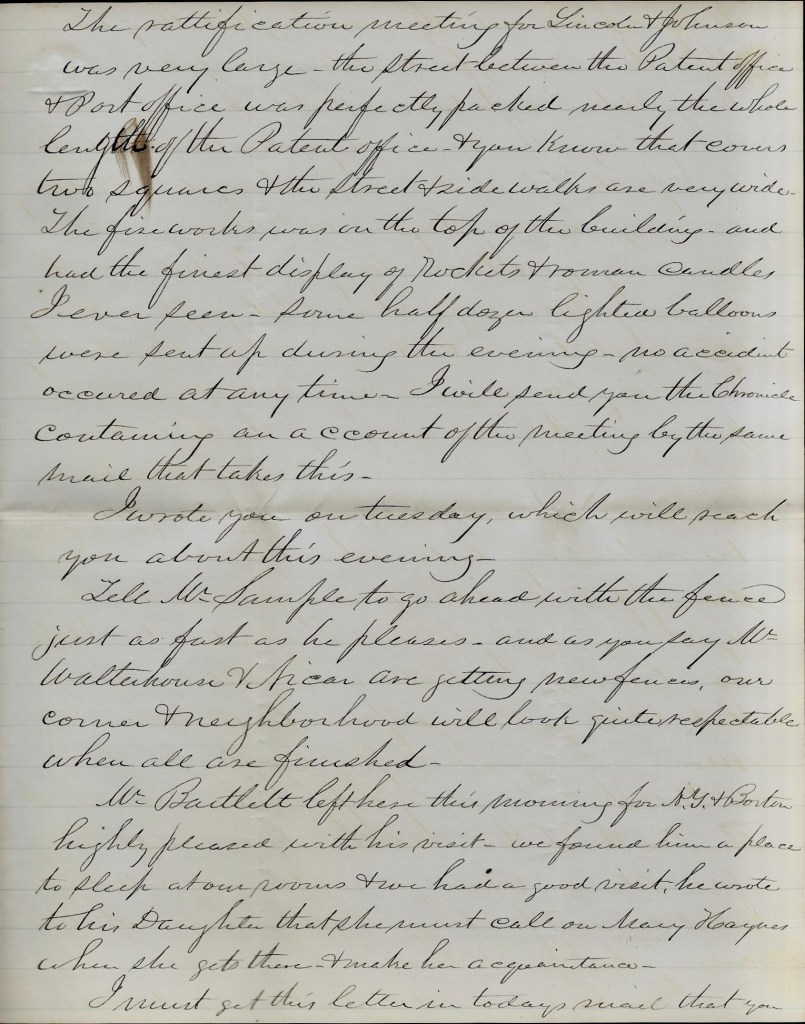 The rattification meeting for Lincoln & Johnson
was very large - the street between the Patent office
& Post office was perfectly packed nearly the whole
length of the Patent office - & you know that covers
two squares & the street & side walks are very wide -
The fireworks was on the top of the building - and
had the finest display of Rockets & roman candles
I ever seen - some half dozen lighted balloons
were sent up during the evening - no accident
occured at any time - I will send you the Chronicle
containing an account of the meeting by the same
mail that takes this -
I wrote you on tuesday, which will reach
you about this evening -
Tell Mr Sample to go ahead with the fence
just as fast as he pleases - and as you say Mr
Walterhouse & Nicar are getting new fences, our
corner & neighborhood will look quite respectable
when all are finished -
Mr Bartlett left here this morning for N.Y. & Boston
highly pleased with his visit - we found him a place
to sleep at our rooms & we had a good visit, he wrote
to his Daughter that she must call on Mary Haynes
when she gets there - & make her acquaintance -
I must get this letter in todays mail that you